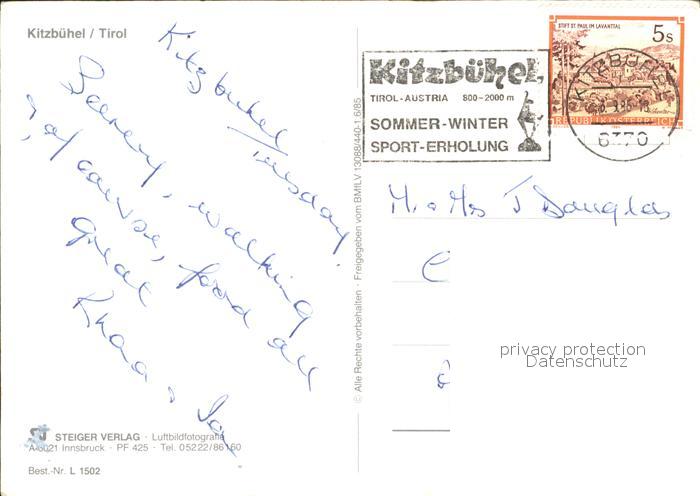 Kitzbühel / Tirol
Kitzbuhel
Tuesday.
Scenery, walking
& of course, food all
great
STEIGER VERLAG · Luftbildfotografie
A-6021 Innsbruck · PF 425 · Tel. 05222/86160
Best.-Nr. L 1502
© Alle Rechte vorbehalten · Freigegeben vom BMfLV 13088/440-1.6/85
Kitzbühel
TIROL-AUSTRIA 800-2000 m
SOMMER-WINTER
SPORT-ERHOLUNG
STIFT ST. PAUL IM LAVANTTAL
5s
REPUBLIK ÖSTERREICH
KITZBÜHEL
6370
M. & Mrs J Douglas
privacy protection
Datenschutz